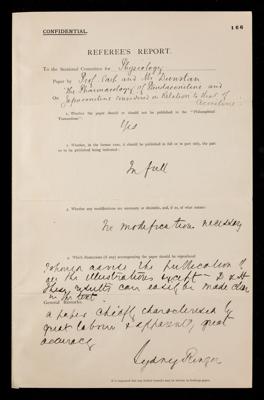 166
CONFIDENTIAL.
REFEREE'S REPORT.
To the Sectional Committee for Physiology
Paper by Prof. Cash and Mr. Dunstan
On "The Pharmacology of Pseudaconitine and
Japaconitine considered in Relation to that of
Aconitine"
1. Whether the paper should or should not be published in the "Philosophical
Transactions":
Yes
2. Whether, in the former case, it should be published in full or in part only, the part
or to be published being indicated:
In full
3. Whether any modifications are necessary or desirable, and, if so, of what nature:
No modification necessary
4. Which illustrations (if any) accompanying the paper should be reproduced
I should advise the publication of
all the Illustrations except
These results can easily be made clear
in the text.
General Remarks.
a paper chiefly characterised by
great labour & apparently great
accuracy
Sydney Ringer